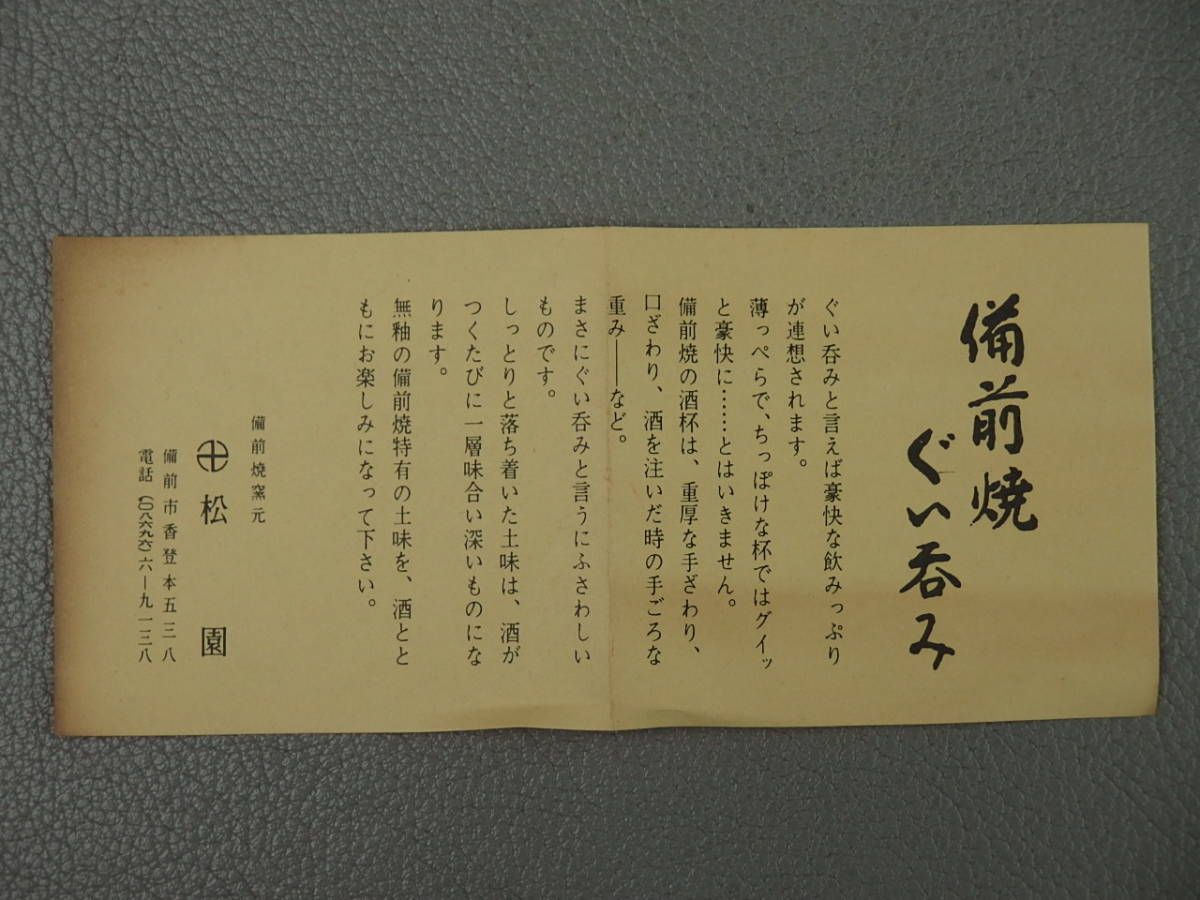 備前焼
ぐい呑み
ぐい呑みと言えば豪快な飲みっぷり
が連想されます。
薄っぺらで、ちっぽけな杯ではグイッ
と豪快に……とはいきません。
備前焼の酒杯は、重厚な手ざわり、
口ざわり、酒を注いだ時の手ごろな
重み――など。
まさにぐい呑みと言うにふさわしい
ものです。
しっとりと落ち着いた土味は、酒が
つくたびに一層味合い深いものにな
ります。
無釉の備前焼特有の土味を、酒とと
もにお楽しみになって下さい。
備前焼窯元
松園
備前市香登本五三八
電話(〇八六九六)六―九一三八